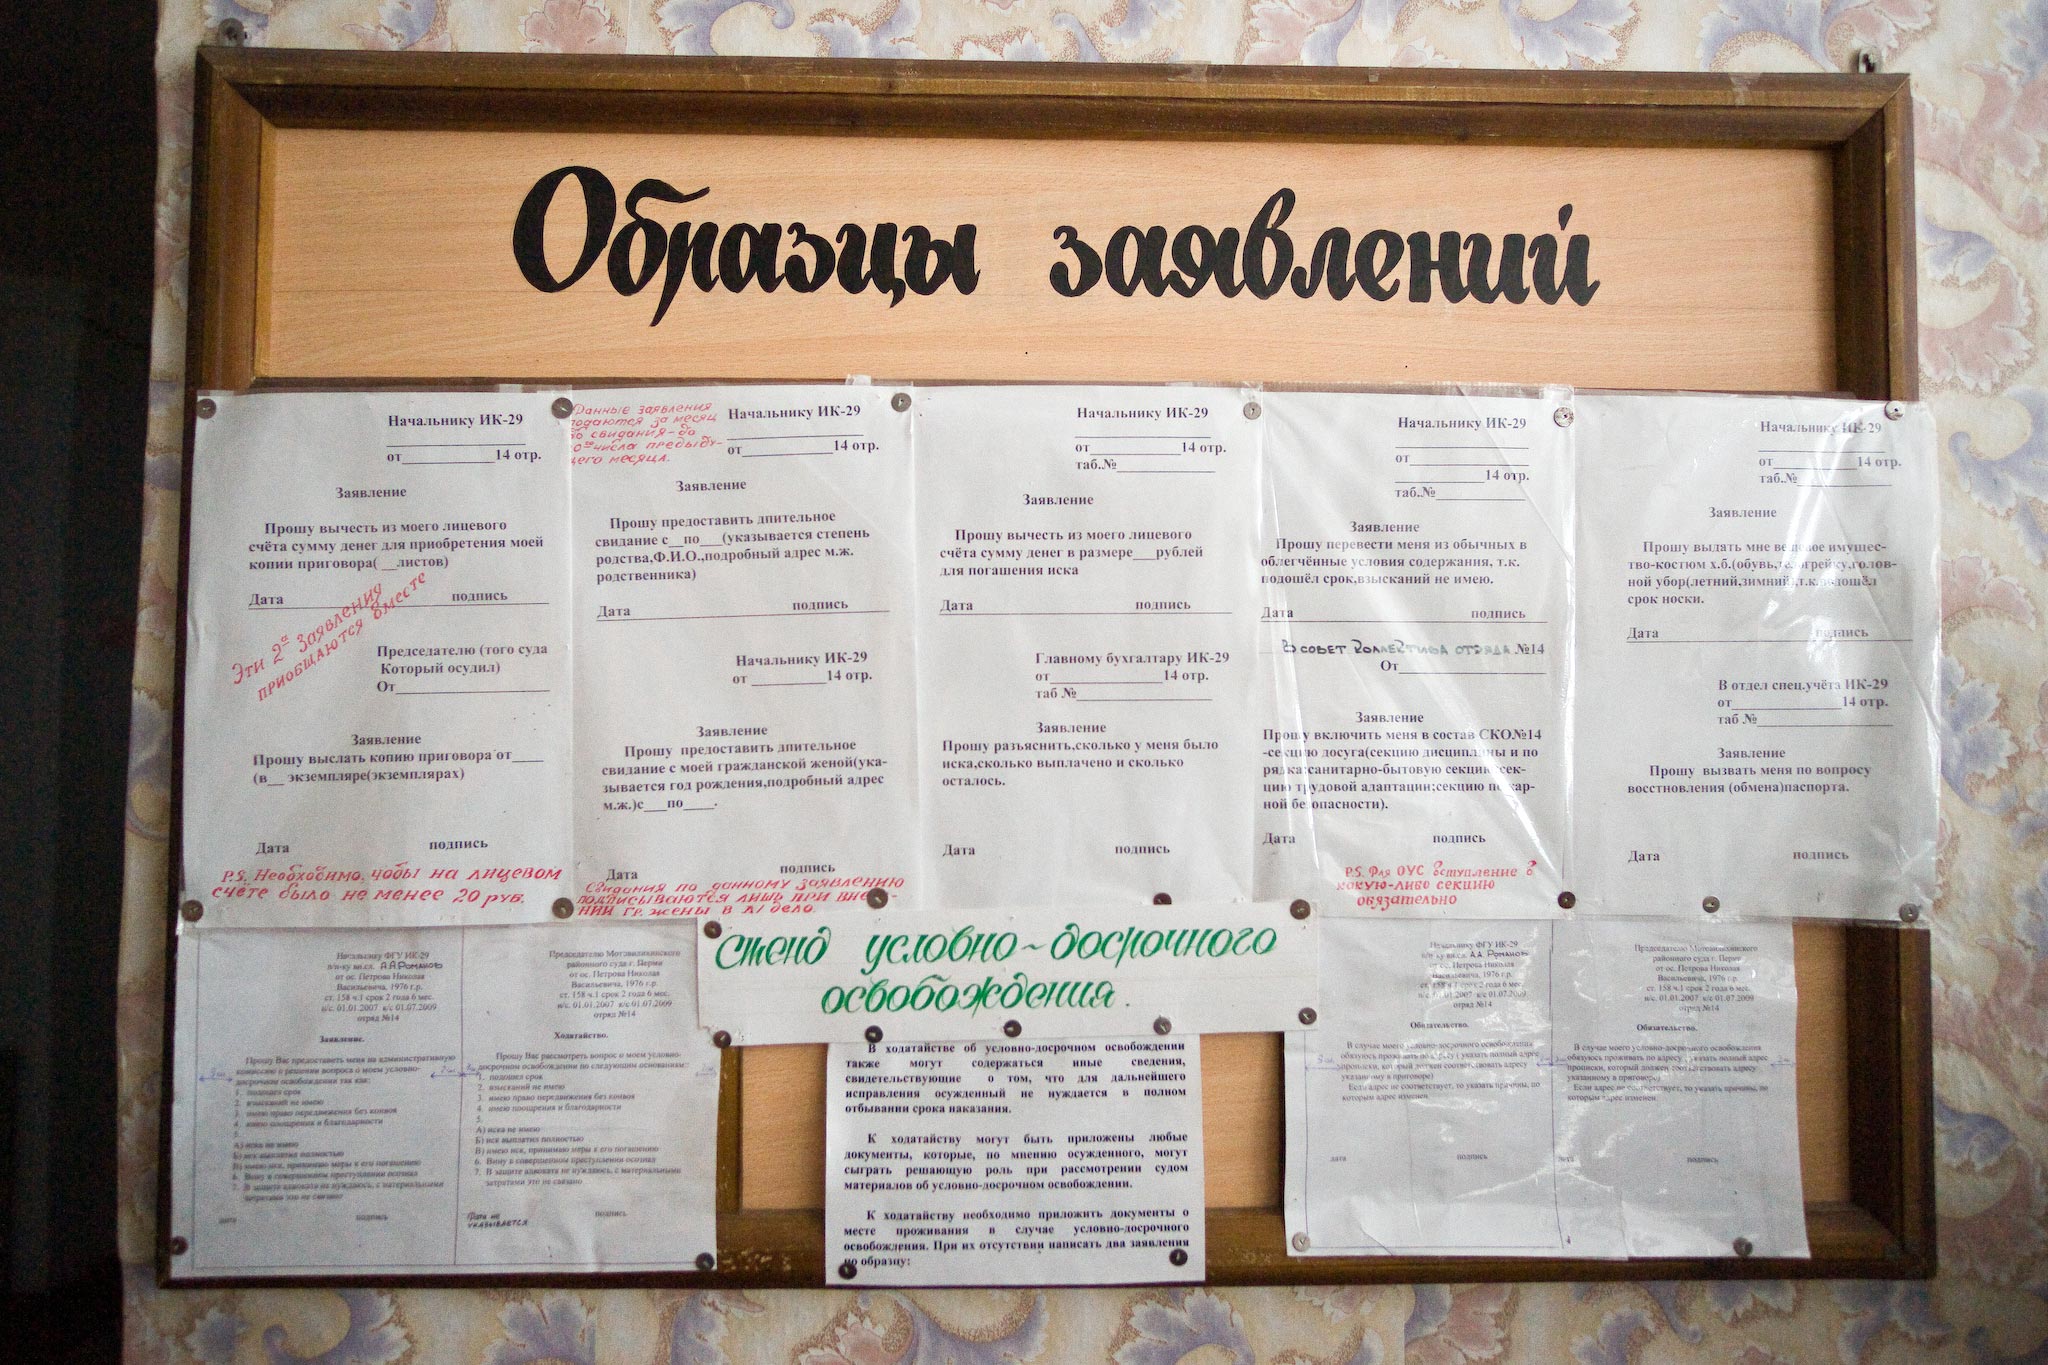 Образцы заявлений
Начальнику ИК-29
от____________14 отр.
Заявление
Прошу вычесть из моего лицевого
счёта сумму денег для приобретения моей
копии приговора( __листов)
Дата подпись
Эти 2а заявления
приобщаются вместе
Председателю (того суда
Который осудил)
От____________________
Заявление
Прошу выслать копию приговора от____
(в__ экземпляре(экземплярах)
Дата подпись
P.S. Необходимо, чтобы на лицевом
счёте было не менее 20 руб.
Данные заявления
подаются за месяц
до свидания-до
числа предыду-
щего месяца.
Начальнику ИК-29
от____________14 отр.
Заявление
Прошу предоставить дпительное
свидание с__по___(указывается степень
родства,Ф.И.О.,подробный адрес м.ж.
родственника)
Дата подпись
Начальнику ИК-29
от __________14 отр.
Заявление
Прошу предоставить дпительное
свидание с моей гражданской женой(ука-
зывается год рождения,подробный адрес
м.ж.)с___по____.
подпись
Дата
Свидания по данному заявлению
подписываются лишь при внесе-
нии гр.жены в л/дело.
Начальнику ИК-29
от__________14 отр.
таб.№____________
Заявление
Прошу вычесть из моего лицевого
счёта сумму денег в размере___рублей
для погашения иска
Дата подпись
Главному бухгалтару ИК-29
от_______________14 отр.
таб №__________________
Заявление
Прошу разъяснить,сколько у меня было
иска,сколько выплачено и сколько
осталось.
Дата подпись
Начальнику ИК-29
от_______________
____________14 отр.
таб.№____________
Заявление
Прошу перевести меня из обычных в
облегчённые условия содержания, т.к.
подошёл срок,взысканий не имею.
Дата подпись
В совет коллектива отряда №14
От___________________
Заявление
Прошу включить меня в состав СКО№14
-секцию досуга(секцию дисциплины и по
рядка:санитарно-бытовую секцию:сек-
цию трудовой адаптации;секцию пожар-
ной безопасности).
Дата подпись
P.S. Для ОУС вступление в
какую-либо секцию
обязательно
Начальнику ИК-29
от___________14 отр.
таб.№____________
Заявление
Прошу выдать мне вещевое имущес-
тво-костюм х.б.(обувь,телогрейку,голов-
ной убор(летний,зимний),т.к.подошёл
срок носки.
Дата подпись
В отдел спец.учёта ИК-29
от______________14 отр.
таб №__________________
Заявление
Прошу вызвать меня по вопросу
восстновления (обмена)паспорта.
Дата подпись
Начальнику ФГУ ИК-29
п/п-ку вн.сл. А.А Романов
от ос. Петрова Николая
Васильевича, 1976 г.р.
ст. 158 ч.1 срок 2 года 6 мес.
н/с. 01.01.2007 к/с 01.07.2009
отряд №14
Заявление.
Прошу Вас предоставить меня на административную
комиссию о решении вопроса о моем условно-
досрочном освобождении так как:
1. подошел срок
2. взысканий не имею
3. имею право передвижения без конвоя
4. имею поощрения и благодарности
5.
А) иска не имею
Б) иск выплатил полностью
В) имею иск, принимаю меры к его погашению
6. Вину в совершенном преступлении осознал
7. В защите адвоката не нуждаюсь, с материальными
затратами это не связано
дата подпись
Председателю Мотовилихинского
районного суда г. Перми
от ос. Петрова Николая
Васильевича, 1976 г.р.
ст. 158 ч.1 срок 2 года 6 мес.
н/с. 01.01.2007 к/с 01.07.2009
отряд №14
Ходатайство.
Прошу Вас рассмотреть вопрос о моем условно-
досрочном освобождении по следующим основаниям:
1. подошел срок
2. взысканий не имею
3. имею право передвижения без конвоя
4. имею поощрения и благодарности
5.
А) иска не имею
Б) иск выплатил полностью
В) имею иск, принимаю меры к его погашению
6. Вину в совершенном преступлении осознал
7. В защите адвоката не нуждаюсь, с материальными
затратами это не связано
Дата не
указывается
подпись
Стенд условно-досрочного
освобождения.
В ходатайстве об условно-досрочном освобождении
также могут содержаться иные сведения,
свидетельствующие о том, что для дальнейшего
исправления осужденный не нуждается в полном
отбывании срока наказания.
К ходатайству могут быть приложены любые
документы, которые, по мнению осужденного, могут
сыграть решающую роль при рассмотрении судом
материалов об условно-досрочном освобождении.
К ходатайству необходимо приложить документы о
месте проживания в случае условно-досрочного
освобождения. При их отсутствии написать два заявления
по образцу:
Начальнику ФГУ ИК-29
п/п-ку вн.сл. А.А. Романов
от ос. Петрова Николая
Васильевича, 1976 г.р.
ст. 158 ч.1 срок 2 года 6 мес.
н/с. 01.01.2007 к/с 01.07.2009
отряд №14
Обязательство.
В случае моего условно-досрочного освобождения
обязуюсь проживать по адресу ( указать полный адрес
прописки, который должен соответствовать адресу
указанному в приговоре)
Если адрес не соответствует, то указать причины, по
которым адрес изменен
дата подпись
Председателю Мотовилихинского
районного суда г. Перми
от ос. Петрова Николая
Васильевича, 1976 г.р.
ст. 158 ч.1 срок 2 года 6 мес.
н/с. 01.01.2007 к/с 01.07.2009
отряд №14
Обязательство.
В случае моего условно-досрочного освобождения
обязуюсь проживать по адресу ( указать полный адрес
прописки, который должен соответствовать адресу
указанному в приговоре)
Если адрес не соответствует, то указать причины, по
которым адрес изменен
дата подпись